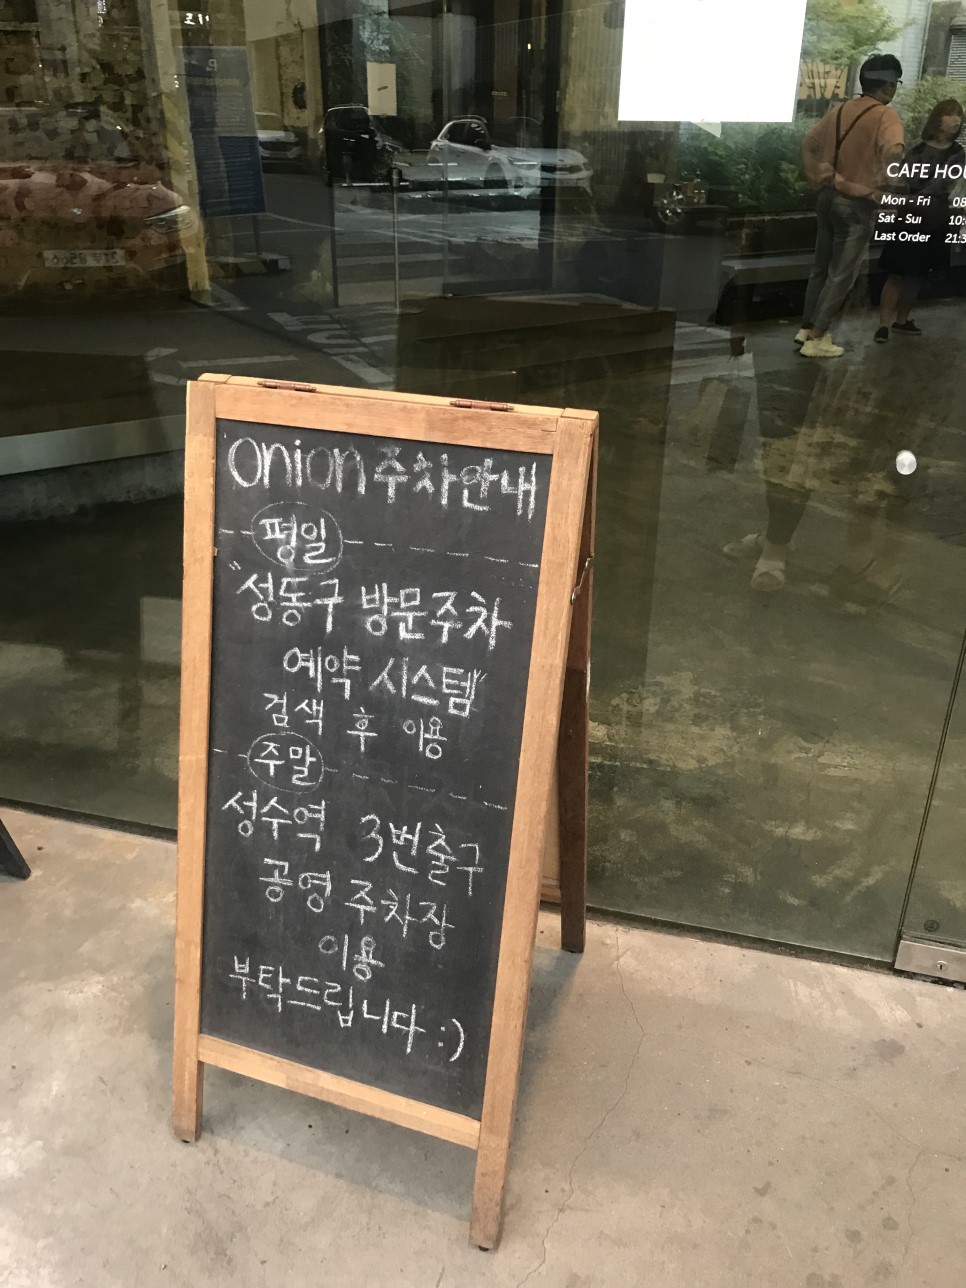 CAFE HOU
Mon - Fri 08
Sat - Sun 10:
Last Order 21:3
Onion 주차안내
평일
"성동구 방문주차
예약 시스템"
검색 후 이용
주말
성수역 3번출구
공영 주차장
이용
부탁드립니다 :)